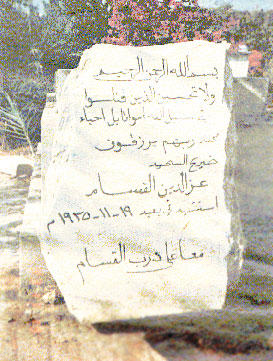 بسم الله الرحمن الرحيم
ولا تحسبن الذين قتلوا
في سبيل الله امواتا بل احياء
عند ربهم يرزقون
ضريح الشهيد
عز الدين القسام
استشهد في يعبد ١٩-١١-١٩٣٥ م
معا على درب القسام